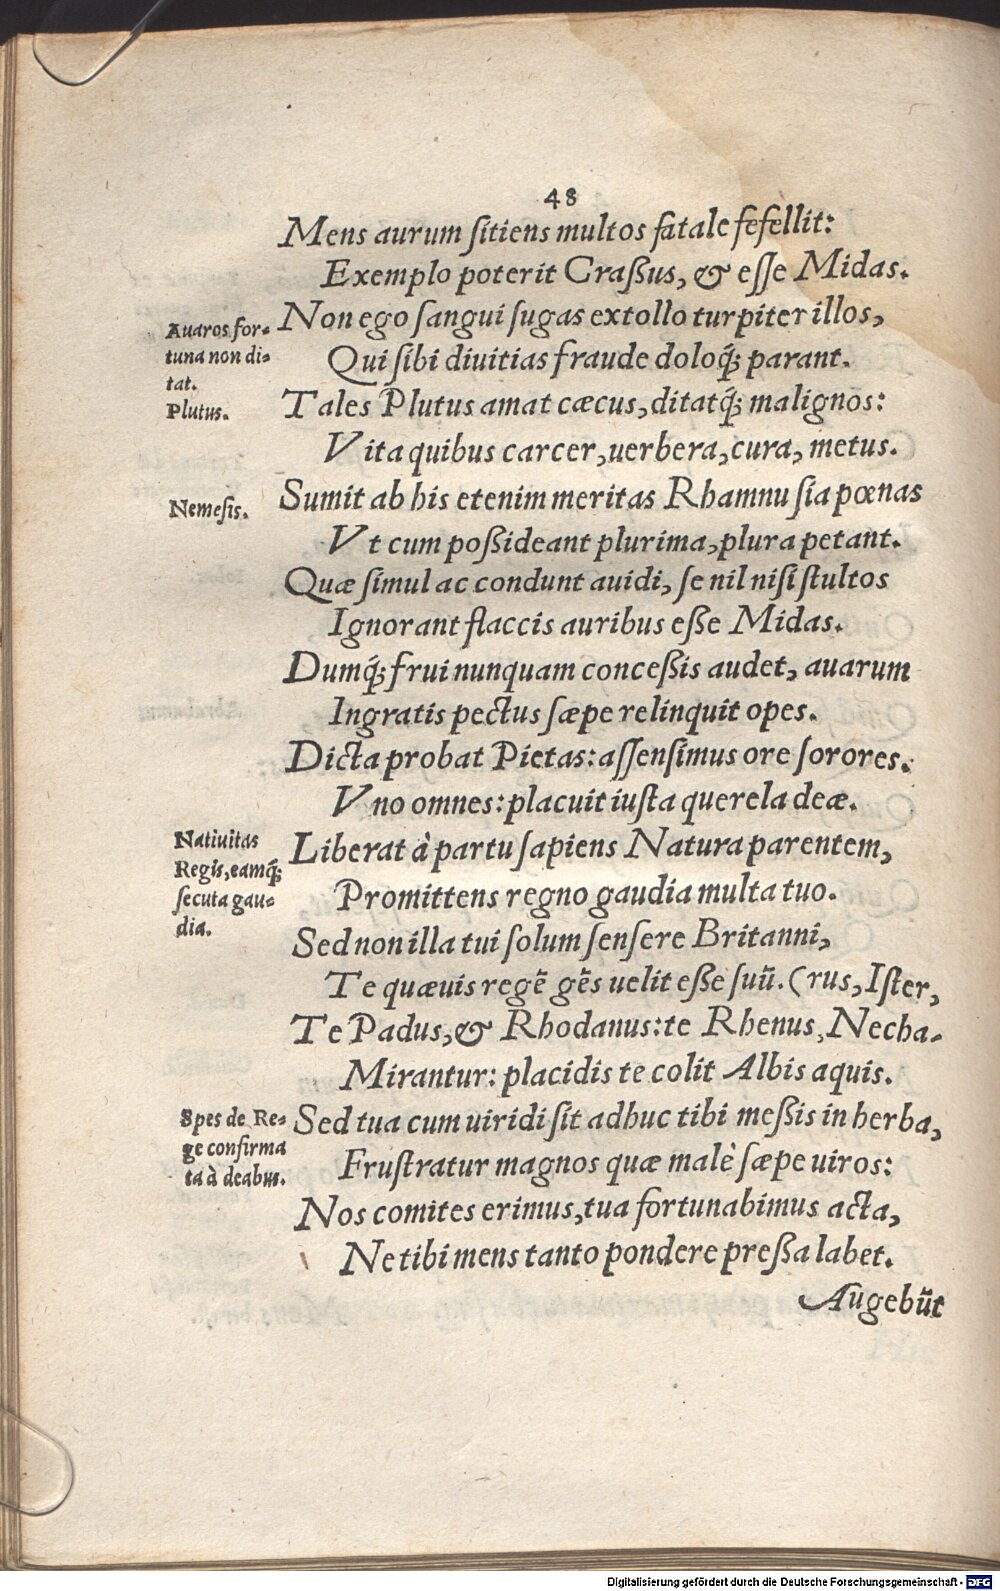 48
Mens aurum ſitiens multos fatale fefellit:
Exemplo poterit Craßus, & eſſe Midas.
Non ego ſangui ſugas extollo turpiter illos,
Auaros for-
tuna non di-
tat.
Qui ſibi diuitias fraude doloq́; parant.
Plutus.
Tales Plutus amat cæcus, ditatq́; malignos:
Vita quibus carcer, uerbera, cura, metus.
Nemeſis.
Sumit ab his etenim meritas Rhamnuſia pœnas
Vt cum poßideant plurima, plura petant.
Quæ ſimul ac condunt auidi, ſe nil niſi ſtultos
Ignorant flaccis auribus eße Midas.
Dumq́; frui nunquam conceßis audet, auarum
Ingratis pectus ſæpe relinquit opes.
Dicta probat Pietas: aſſenſimus ore ſorores.
Vno omnes: placuit iuſta querela deæ.
Natiuitas
Regis, eamq́;
ſecuta gau-
dia.
Liberat à partu ſapiens Natura parentem,
Promittens regno gaudia multa tuo.
Sed non illa tui ſolum ſenſere Britanni,
Te quæuis regē gēs uelit eße ſuū. (rus, Iſter,
Te Padus, & Rhodanus: te Rhenus, Necha-
Mirantur: placidis te colit Albis aquis.
Spes de Re-
ge confirma
ta à deabus.
Sed tua cum uiridi ſit adhuc tibi meßis in herba,
Fruſtratur magnos quæ malè ſæpe uiros:
Nos comites erimus, tua fortunabimus acta,
Ne tibi mens tanto pondere preßa labet.
Augebūt
Digitalisierung gefördert durch die Deutsche Forschungsgemeinschaft - DFG